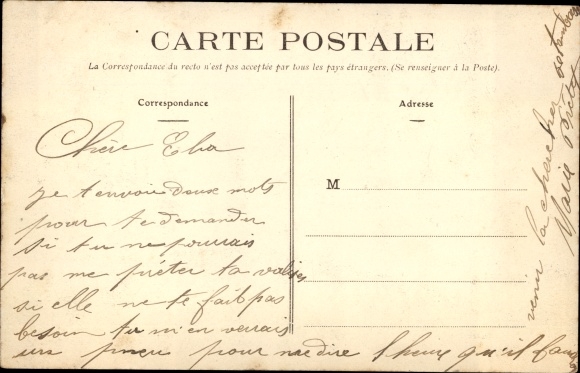 CARTE POSTALE
La Correspondance du recto n'est pas acceptée par tous les pays étrangers. (Se renseigner à la Poste).
Correspondance
Adresse
M
Chère Elva
je t envoie deux mots
pour te demander
si tu ne pourrais
pas me prêter ta valise
si elle ne te fait pas
besoin tu m'en verrais
un pneu pour me dire l heure qu'il faut
venir la chercher
Marie